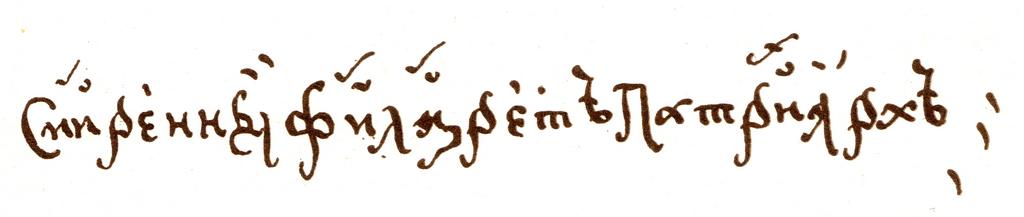 Смирѐнный филарѐтъ Патриѧрхъ